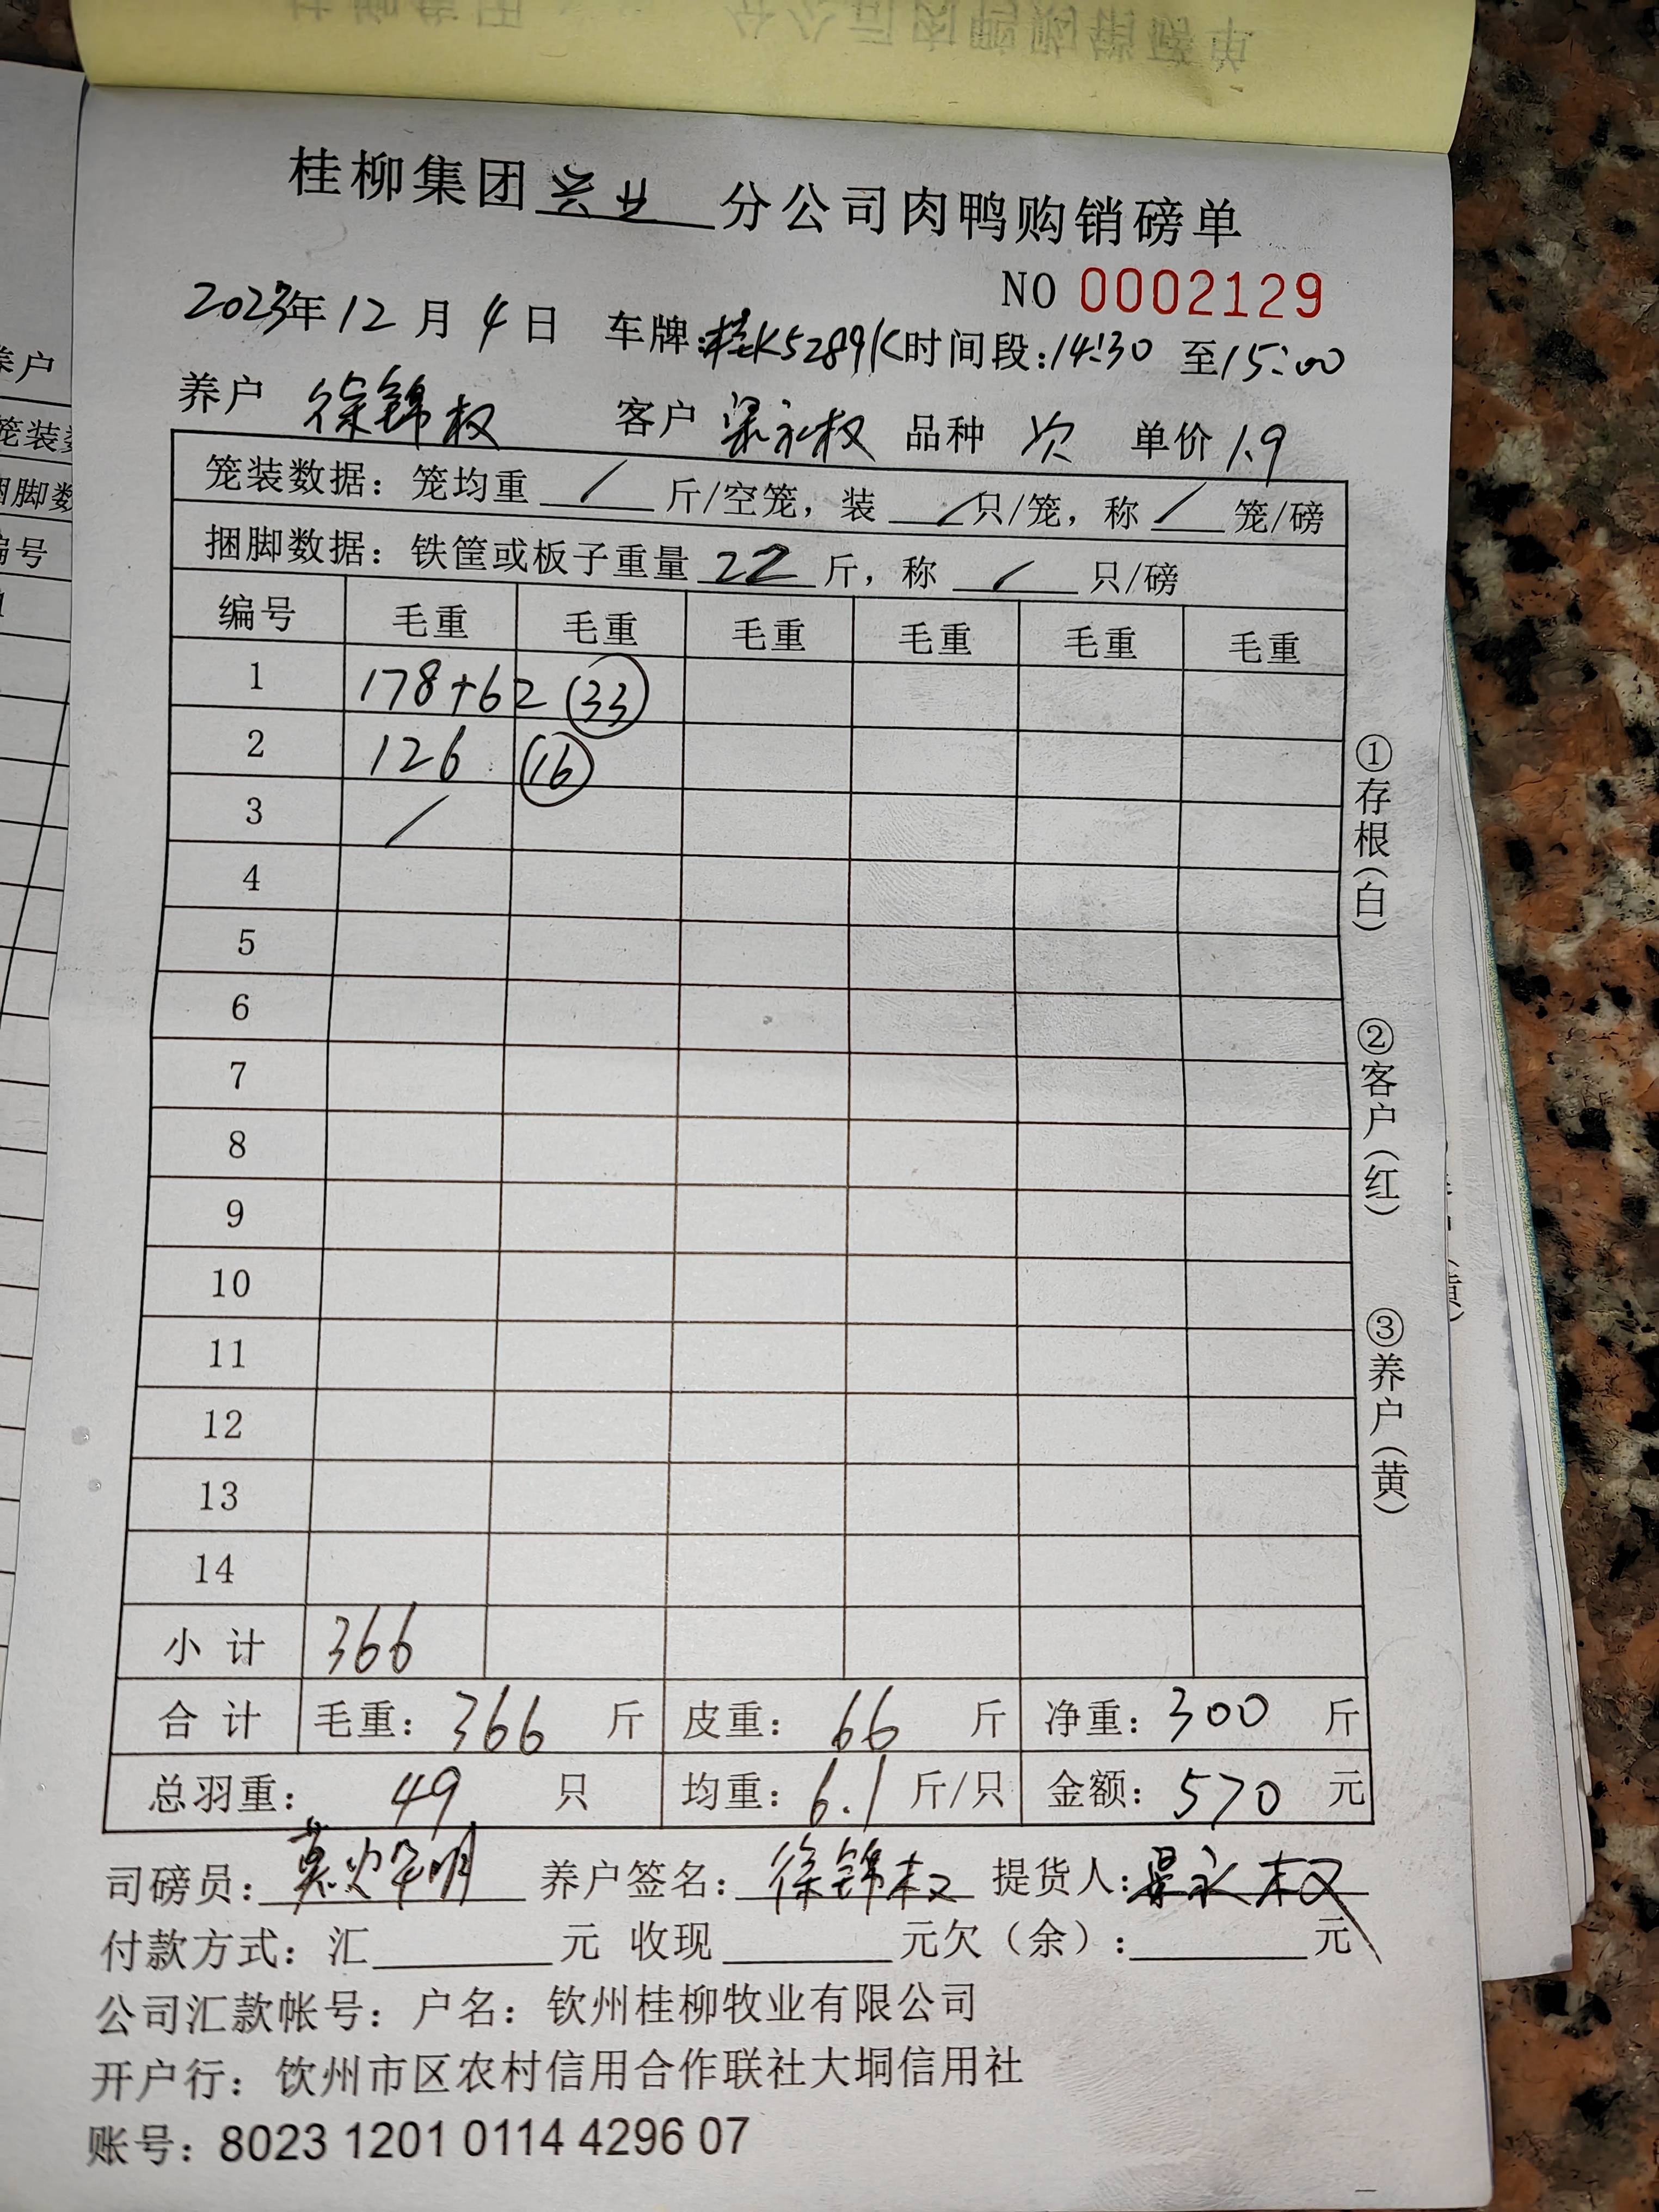 桂柳集团兴业分公司肉鸭购销磅单
NO 0002129
2023年12月4日 车牌:桂K5289K时间段:14:30至15:00
养户 徐锦权 客户 梁永权 品种 次 单价 1.9
笼装数据：笼均重 / 斤/空笼，装 / 只/笼，称 / 笼/磅
捆脚数据：铁筐或板子重量 22 斤，称 / 只/磅
编号 毛重 毛重 毛重 毛重 毛重 毛重
1 178+62 (33)
2 126 (16)
3 /
4
5
6
7
8
9
10
11
12
13
14
小计 366
合计 毛重：366 斤 皮重：66 斤 净重：300 斤
总羽重：49 只 均重：6.1 斤/只 金额：570 元
司磅员： 养户签名：徐锦权 提货人：梁永权
付款方式：汇 元 收现 元欠（余）： 元
公司汇款帐号：户名：钦州桂柳牧业有限公司
开户行：钦州市区农村信用合作联社大垌信用社
账号：8023 1201 0114 4296 07
①存根(白)
②客户(红)
③养户(黄)
养户
笼装
捆脚数
编号